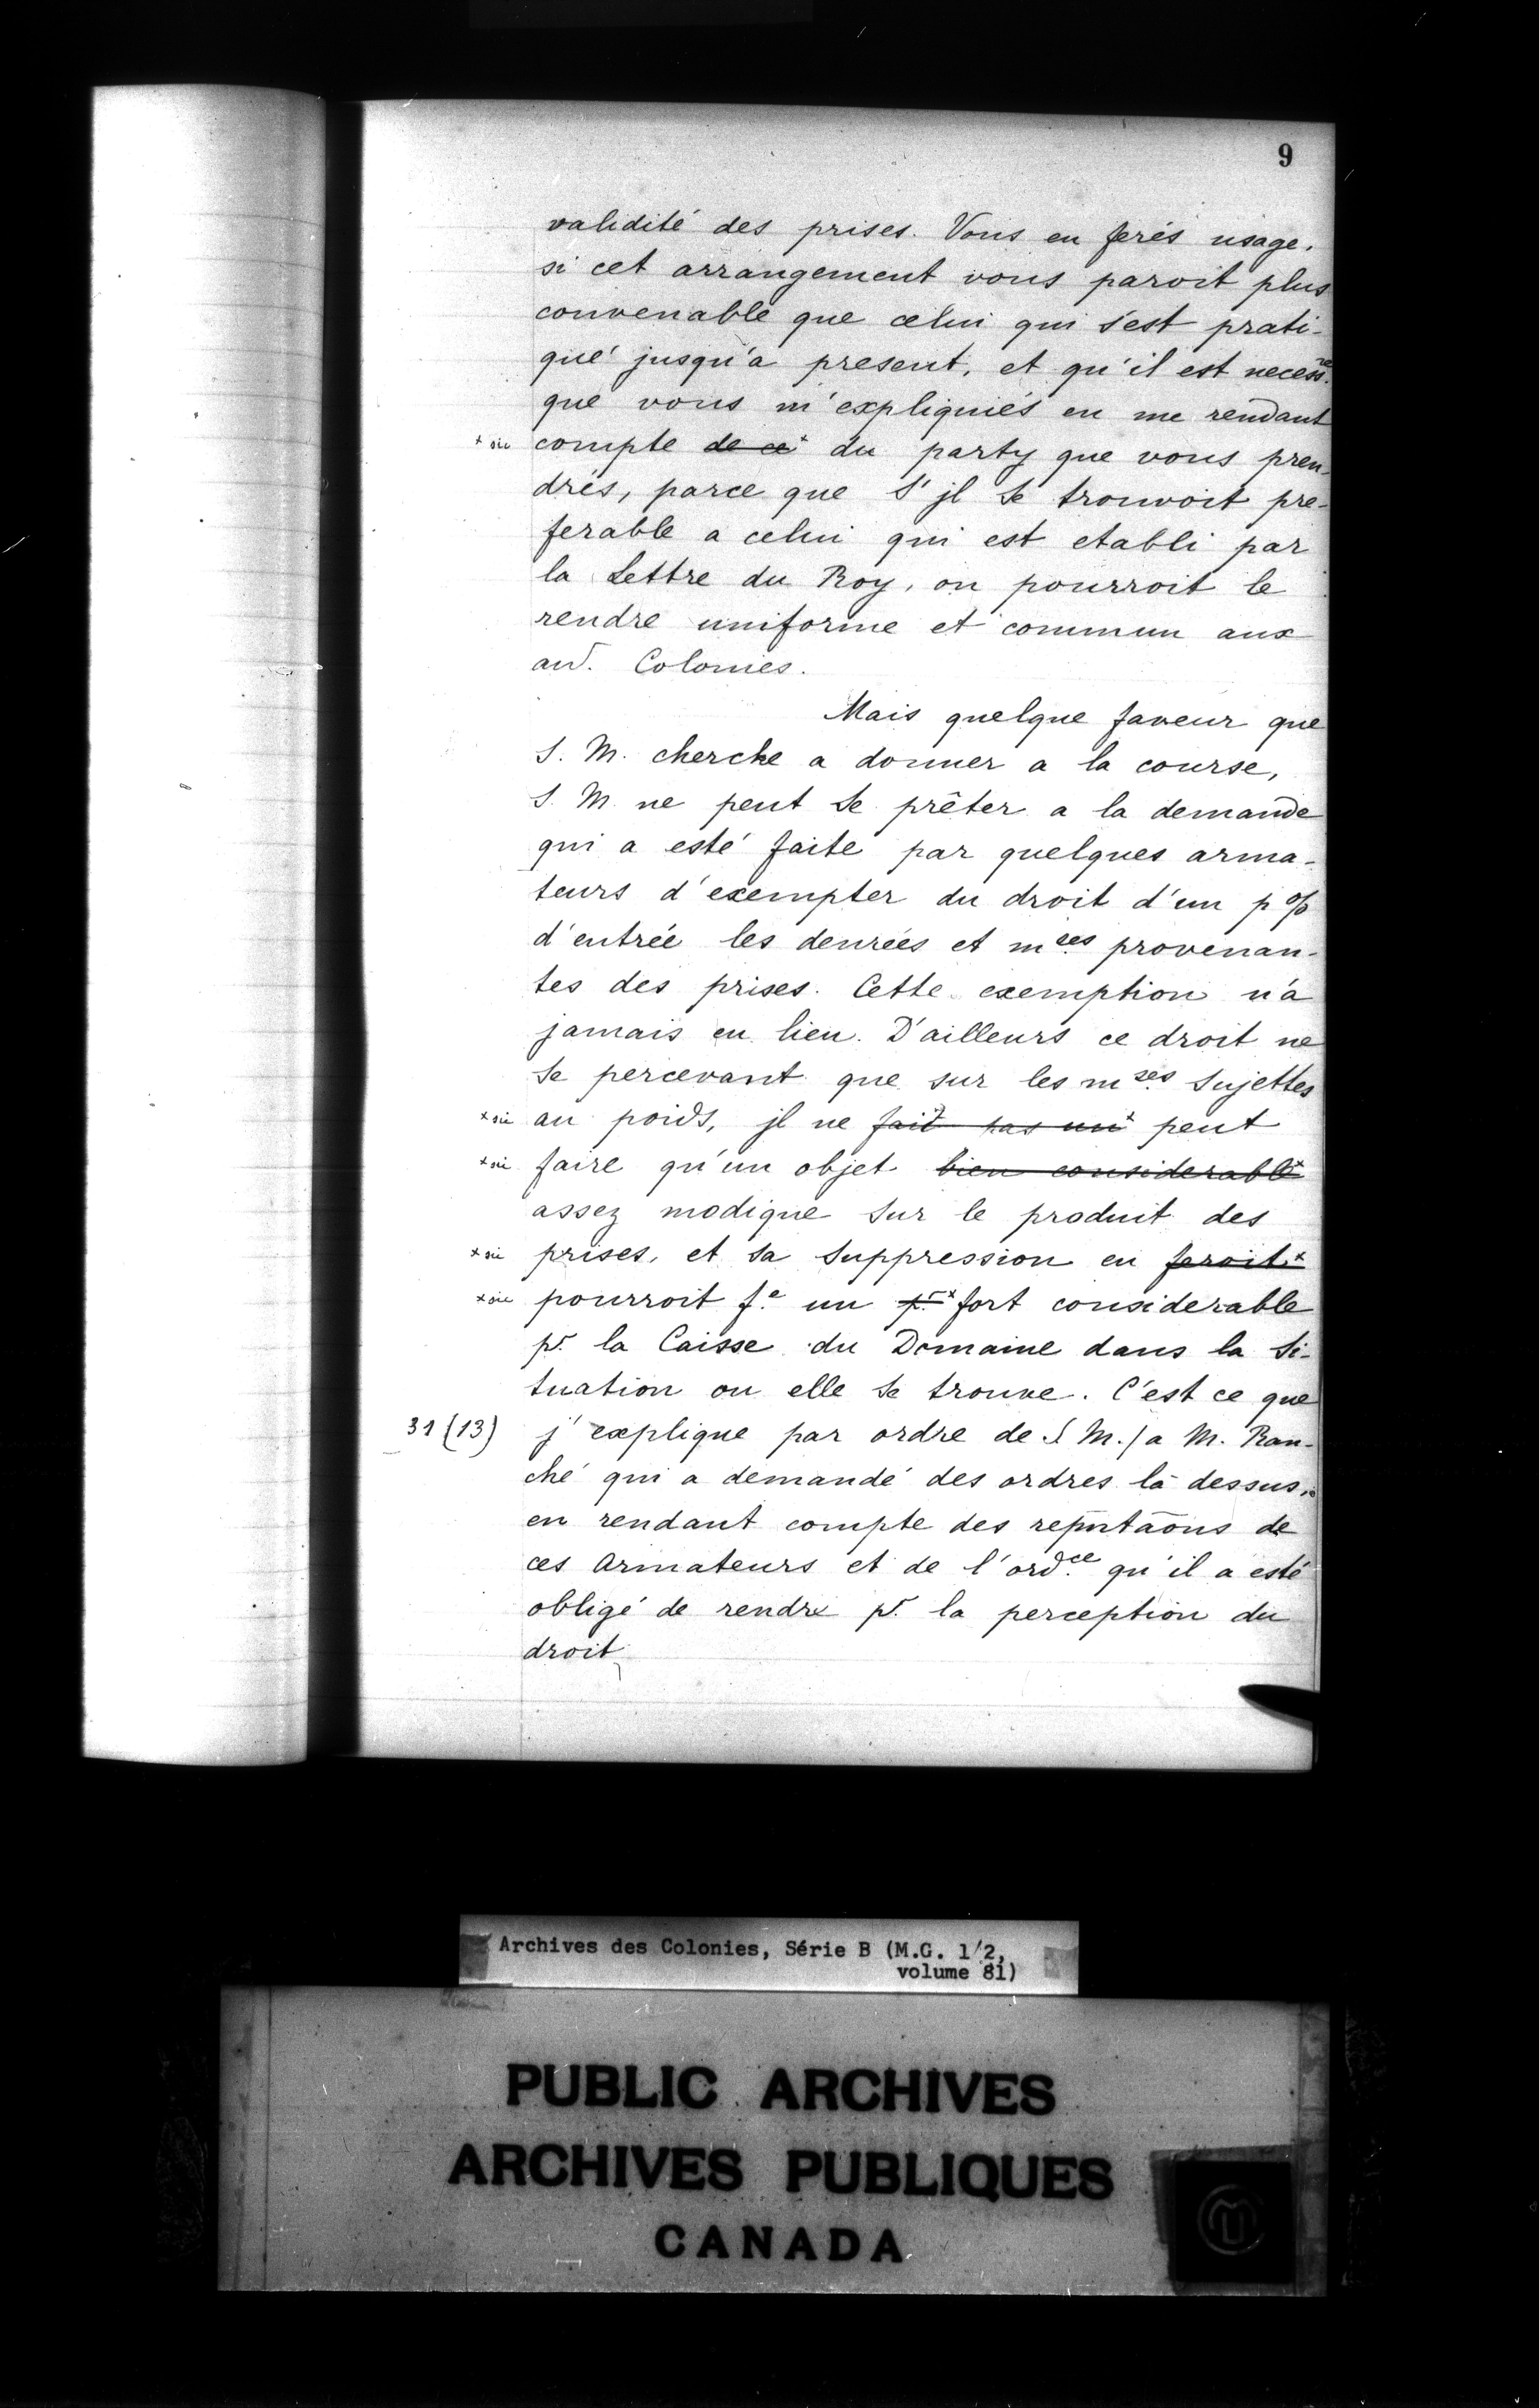 9
validité des prises. Vous en ferés usage,
si cet arrangement vous paroit plus
convenable que celui qui s'est prati-
qué jusqu'a present, et qu'il est necess.re
que vous m'expliquiés en me rendant
x sic compte de ce x du party que vous pren-
drés, parce que s'jl se trouvoit pre-
ferable a celui qui est etabli par
la Lettre du Roy, on pourroit le
rendre uniforme et commun aux
au. Colonies.
Mais quelque faveur que
S. M. cherche a donner a la course,
S. M. ne peut se prêter a la demande
qui a esté faite par quelques arma-
teurs d'exempter du droit d'un p%
d'entrée les denrées et m.ces provenan-
tes des prises. Cette exemption n'a
jamais eu lieu. D'ailleurs ce droit ne
se percevant que sur les m.ses sujettes
x sic au poids, jl ne fait pas un x peut
x sic faire qu'un objet bien considerable x
assez modique sur le produit des
x sic prises, et sa suppression en feroit x
x sic pourroit f.e un p.r x fort considerable
p.r la Caisse du Domaine dans la si-
tuation ou elle se trouve. C'est ce que
31 (13) j'explique par ordre de S. M./a M. Ran-
ché qui a demandé des ordres là dessus,
en rendant compte des reputãons de
ces armateurs et de l'ord.ce qu'il a esté
obligé de rendre p.r la perception du
droit
Archives des Colonies, Série B (M.G. 1/2,
volume 81)
PUBLIC ARCHIVES
ARCHIVES PUBLIQUES
CANADA